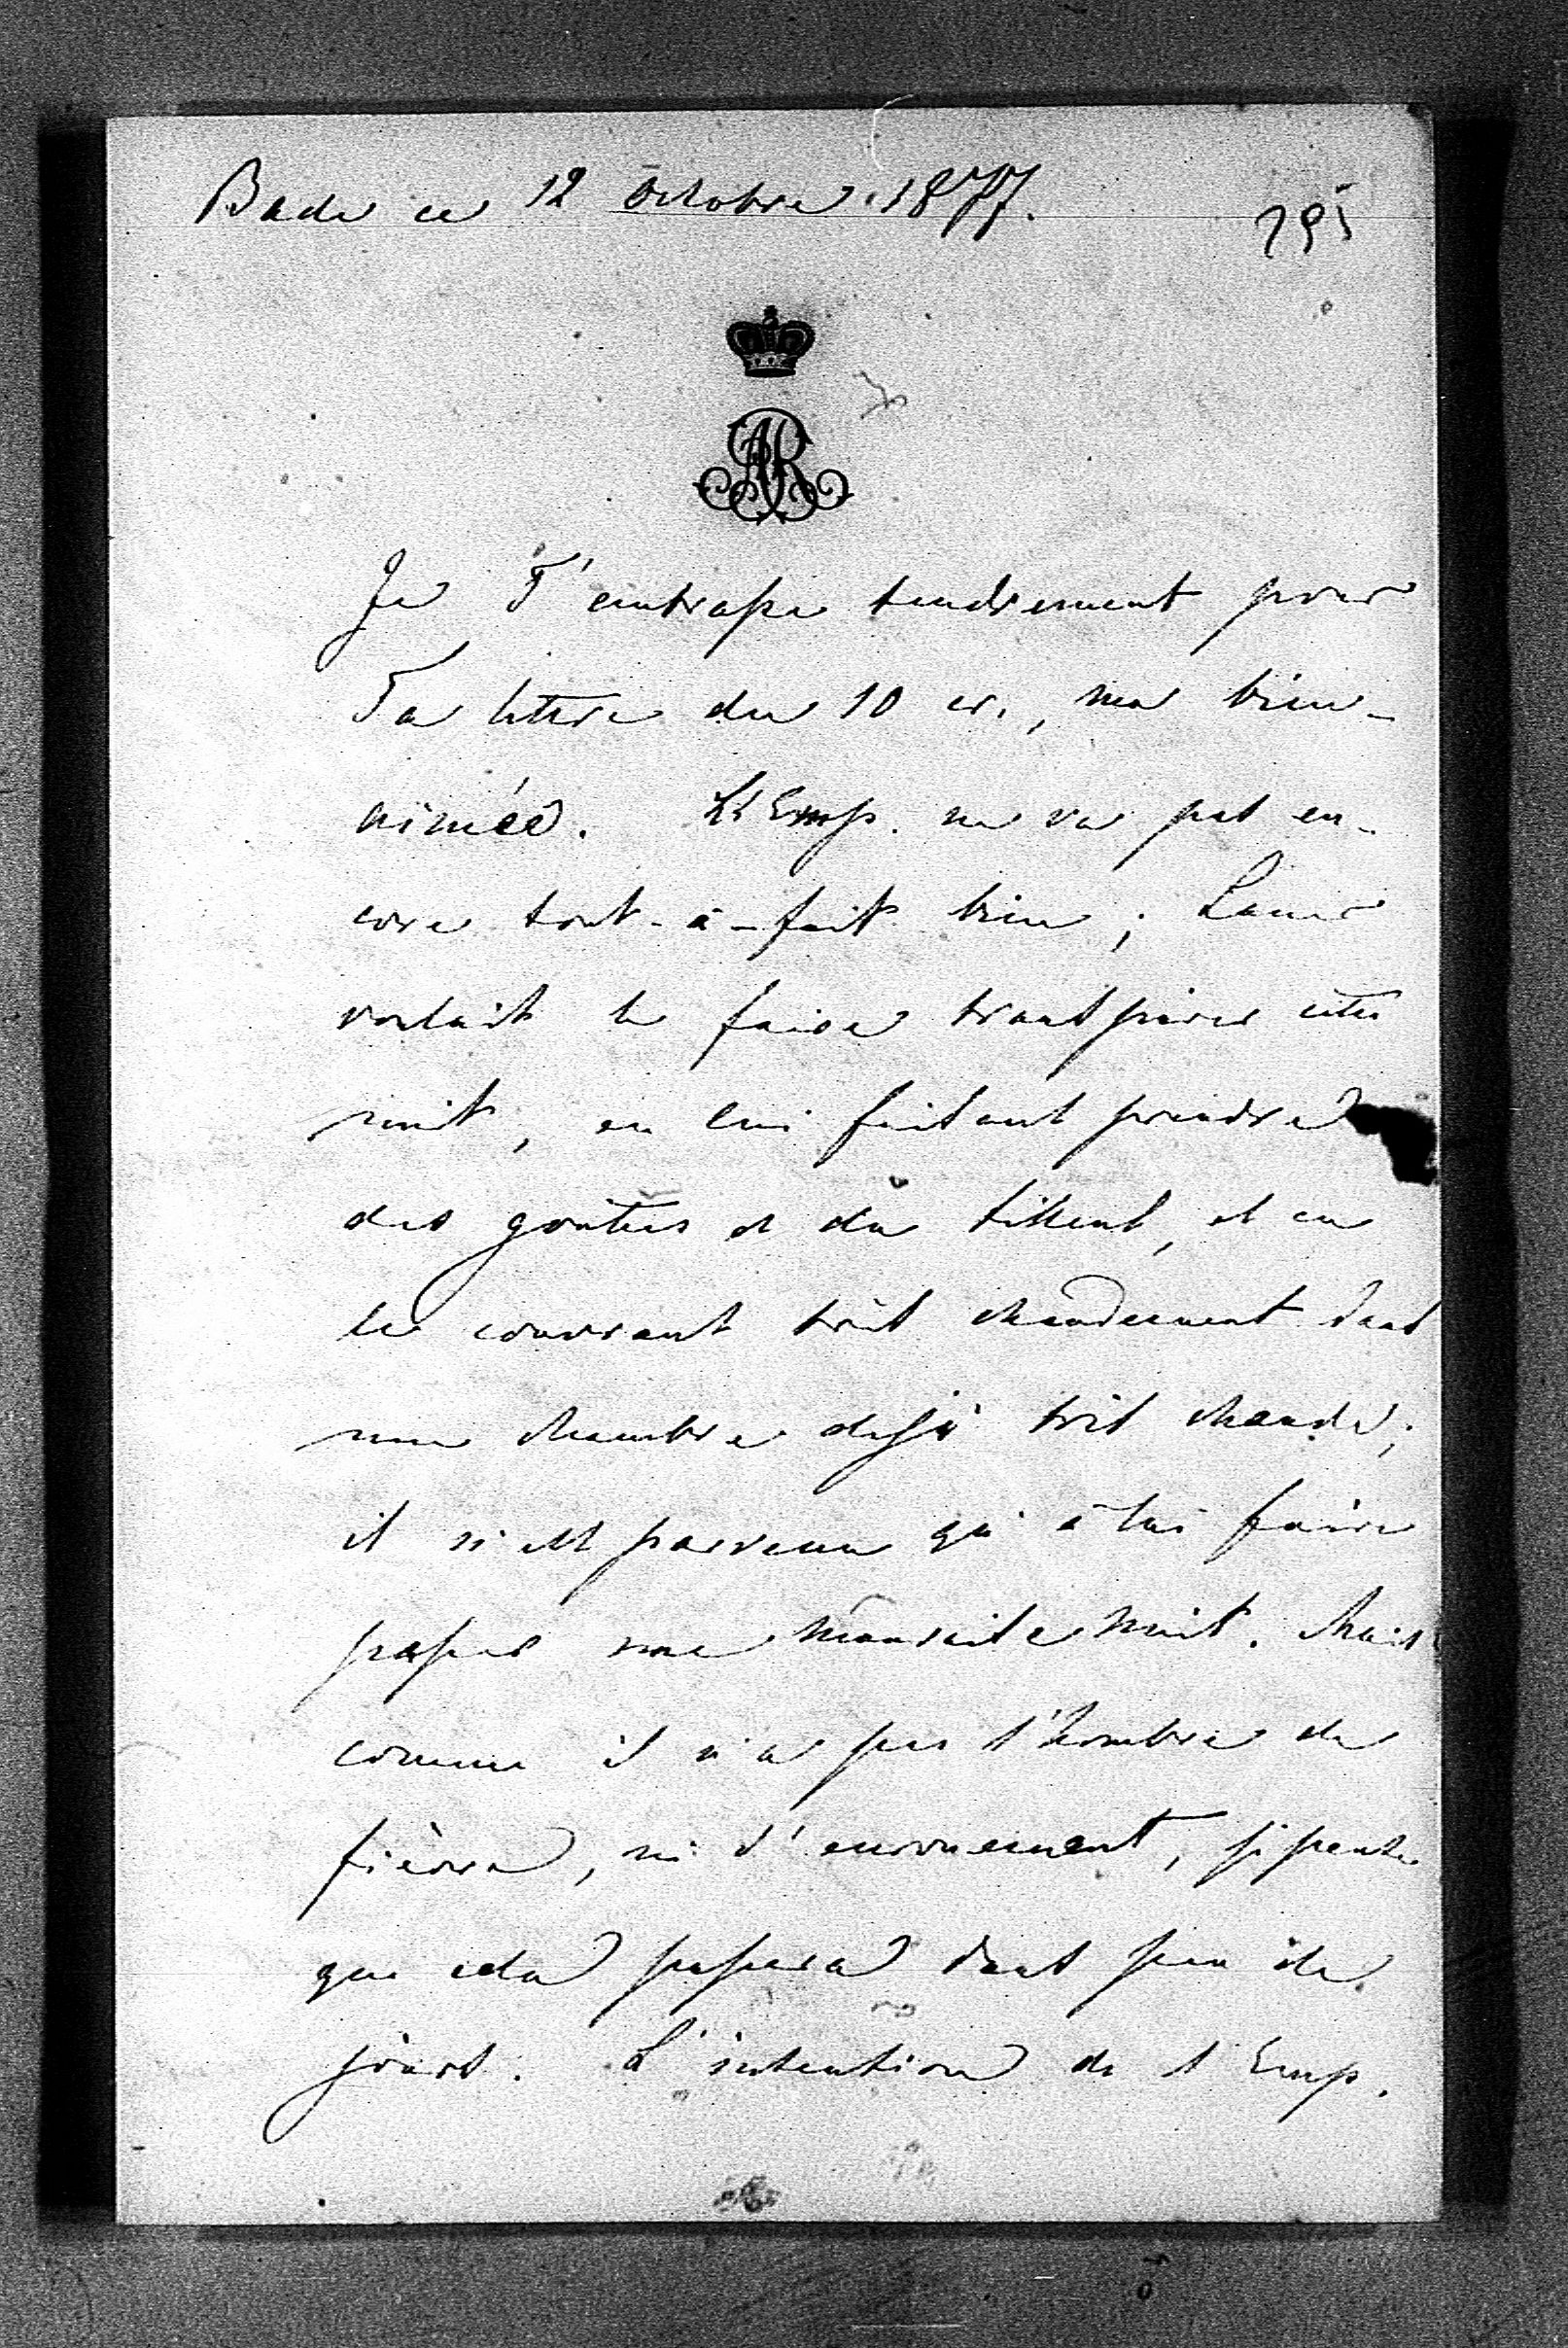 Bade ce 12 Octobre 1877.
295
AR
Je T'embrasse tendrement pour
Ta lettre du 10 cr., ma bien-
aimée. L'Emp. ne va pas en-
core tout-à-fait bien; Lauer
voulait le faire transpirer cette
nuit, en lui faisant prendre
des gouttes et du tilleul, et en
le couvrant très chaudement dans
une chambre déjà très chaude;
il n'est parvenu qu'à lui faire
passer une mauvaise nuit. Mais
comme il n'a pas l'hombre de
fièvre, ni d'enrouement, je pense
que cela passera dans peu de
jours. L'intention de l'Emp.